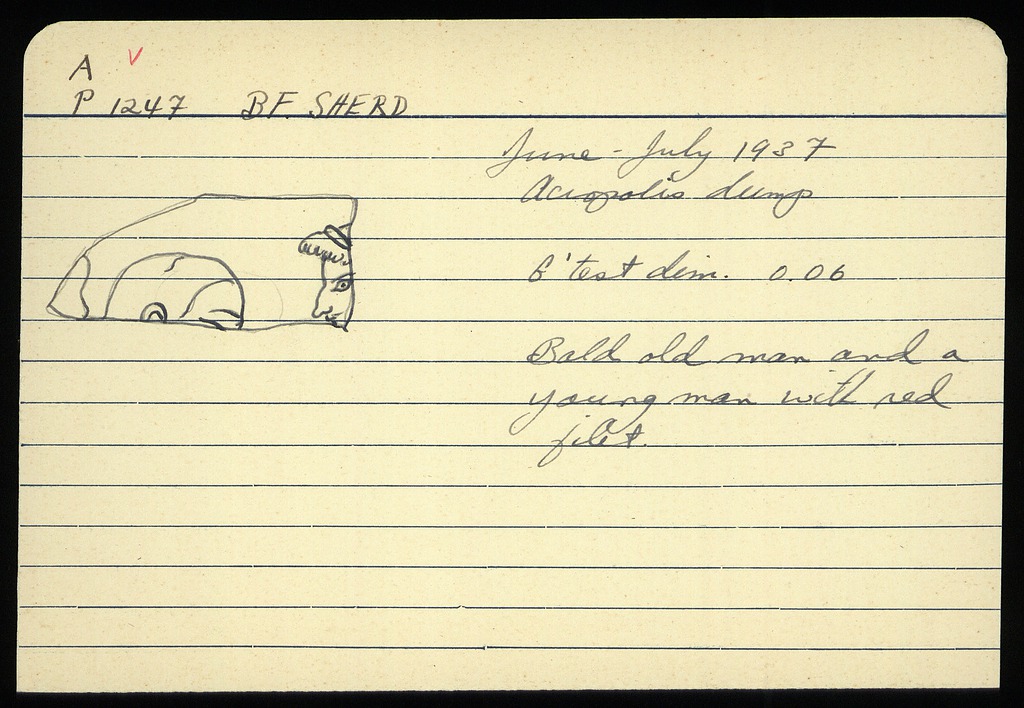 A
P 1247 BF. SHERD
June - July 1937
Acropolis dump
G'test dim. 0.06
Bald old man and a
young man with red
filet.